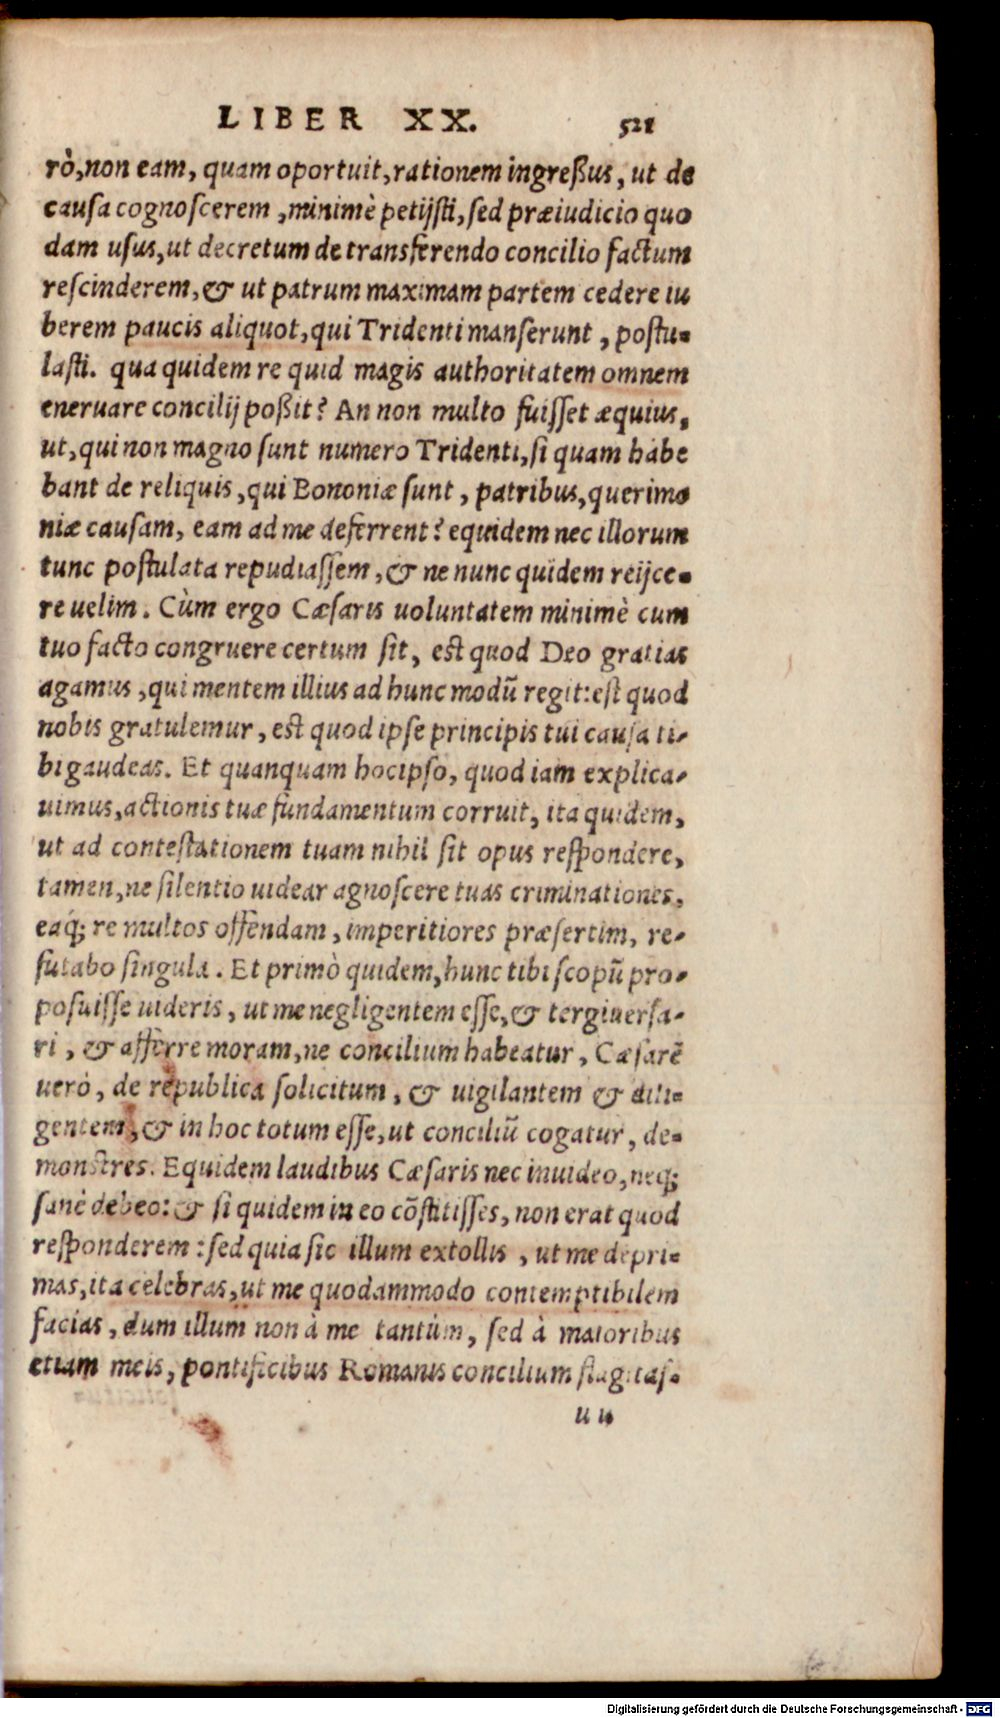 LIBER XX. 521
rò, non eam, quam oportuit, rationem ingreßus, ut de
causa cognoscerem, minimè petijsti, sed præiudicio quo
dam usus, ut decretum de transferendo concilio factum
rescinderem, & ut patrum maximam partem cedere iu
berem paucis aliquot, qui Tridenti manserunt, postu-
lasti. qua quidem re quid magis authoritatem omnem
eneruare concilij poßit? An non multo fuisset æquius,
ut, qui non magno sunt numero Tridenti, si quam habe
bant de reliquis, qui Bononiæ sunt, patribus, querimo
niæ causam, eam ad me deferrent? equidem nec illorum
tunc postulata repudiassem, & ne nunc quidem reijce-
re uelim. Cùm ergo Cæsaris uoluntatem minimè cum
tuo facto congruere certum sit, est quod Deo gratias
agamus, qui mentem illius ad hunc modū regit: est quod
nobis gratulemur, est quod ipse principis tui causa ti-
bi gaudeas. Et quanquam hoc ipso, quod iam explica-
uimus, actionis tuæ fundamentum corruit, ita quidem,
ut ad contestationem tuam nihil sit opus respondere,
tamen, ne silentio uidear agnoscere tuas criminationes,
eaq́; re multos offendam, imperitiores præsertim, re-
futabo singula. Et primò quidem, hunc tibi scopū pro-
posuisse uideris, ut me negligentem esse, & tergiuersa-
ri, & afferre moram, ne concilium habeatur, Cæsarē
uerò, de republica solicitum, & uigilantem & dili-
gentem, & in hoc totum esse, ut conciliū cogatur, de-
monstres. Equidem laudibus Cæsaris nec inuideo, neq;
sanè debeo: & si quidem in eo cōstitisses, non erat quod
responderem: sed quia sic illum extollis, ut me depri-
mas, ita celebras, ut me quodammodo contemptibilem
facias, dum illum non à me tantùm, sed à maioribus
etiam meis, pontificibus Romanis concilium flagitas-
u u
Digitalisierung gefördert durch die Deutsche Forschungsgemeinschaft - DFG